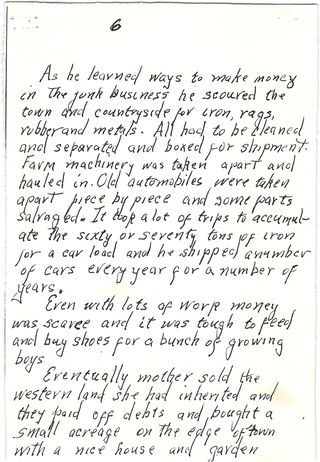 6
As he learned ways to make money
in the junk business he scoured the
town and countryside for iron, rags,
rubber and metals. All had to be cleaned
and separated and boxed for shipment.
Farm machinery was taken apart and
hauled in. Old automobiles were taken
apart piece by piece and some parts
salvaged. It took a lot of trips to accumul-
ate the sixty or seventy tons of iron
for a car load and he shipped a number
of cars every year for a number of
years.
Even with lots of work money
was scarce and it was tough to feed
and buy shoes for a bunch of growing
boys
Eventually mother sold the
western land she had inherited and
they paid off debts and bought a
small acreage on the edge of town
with a nice house and garden